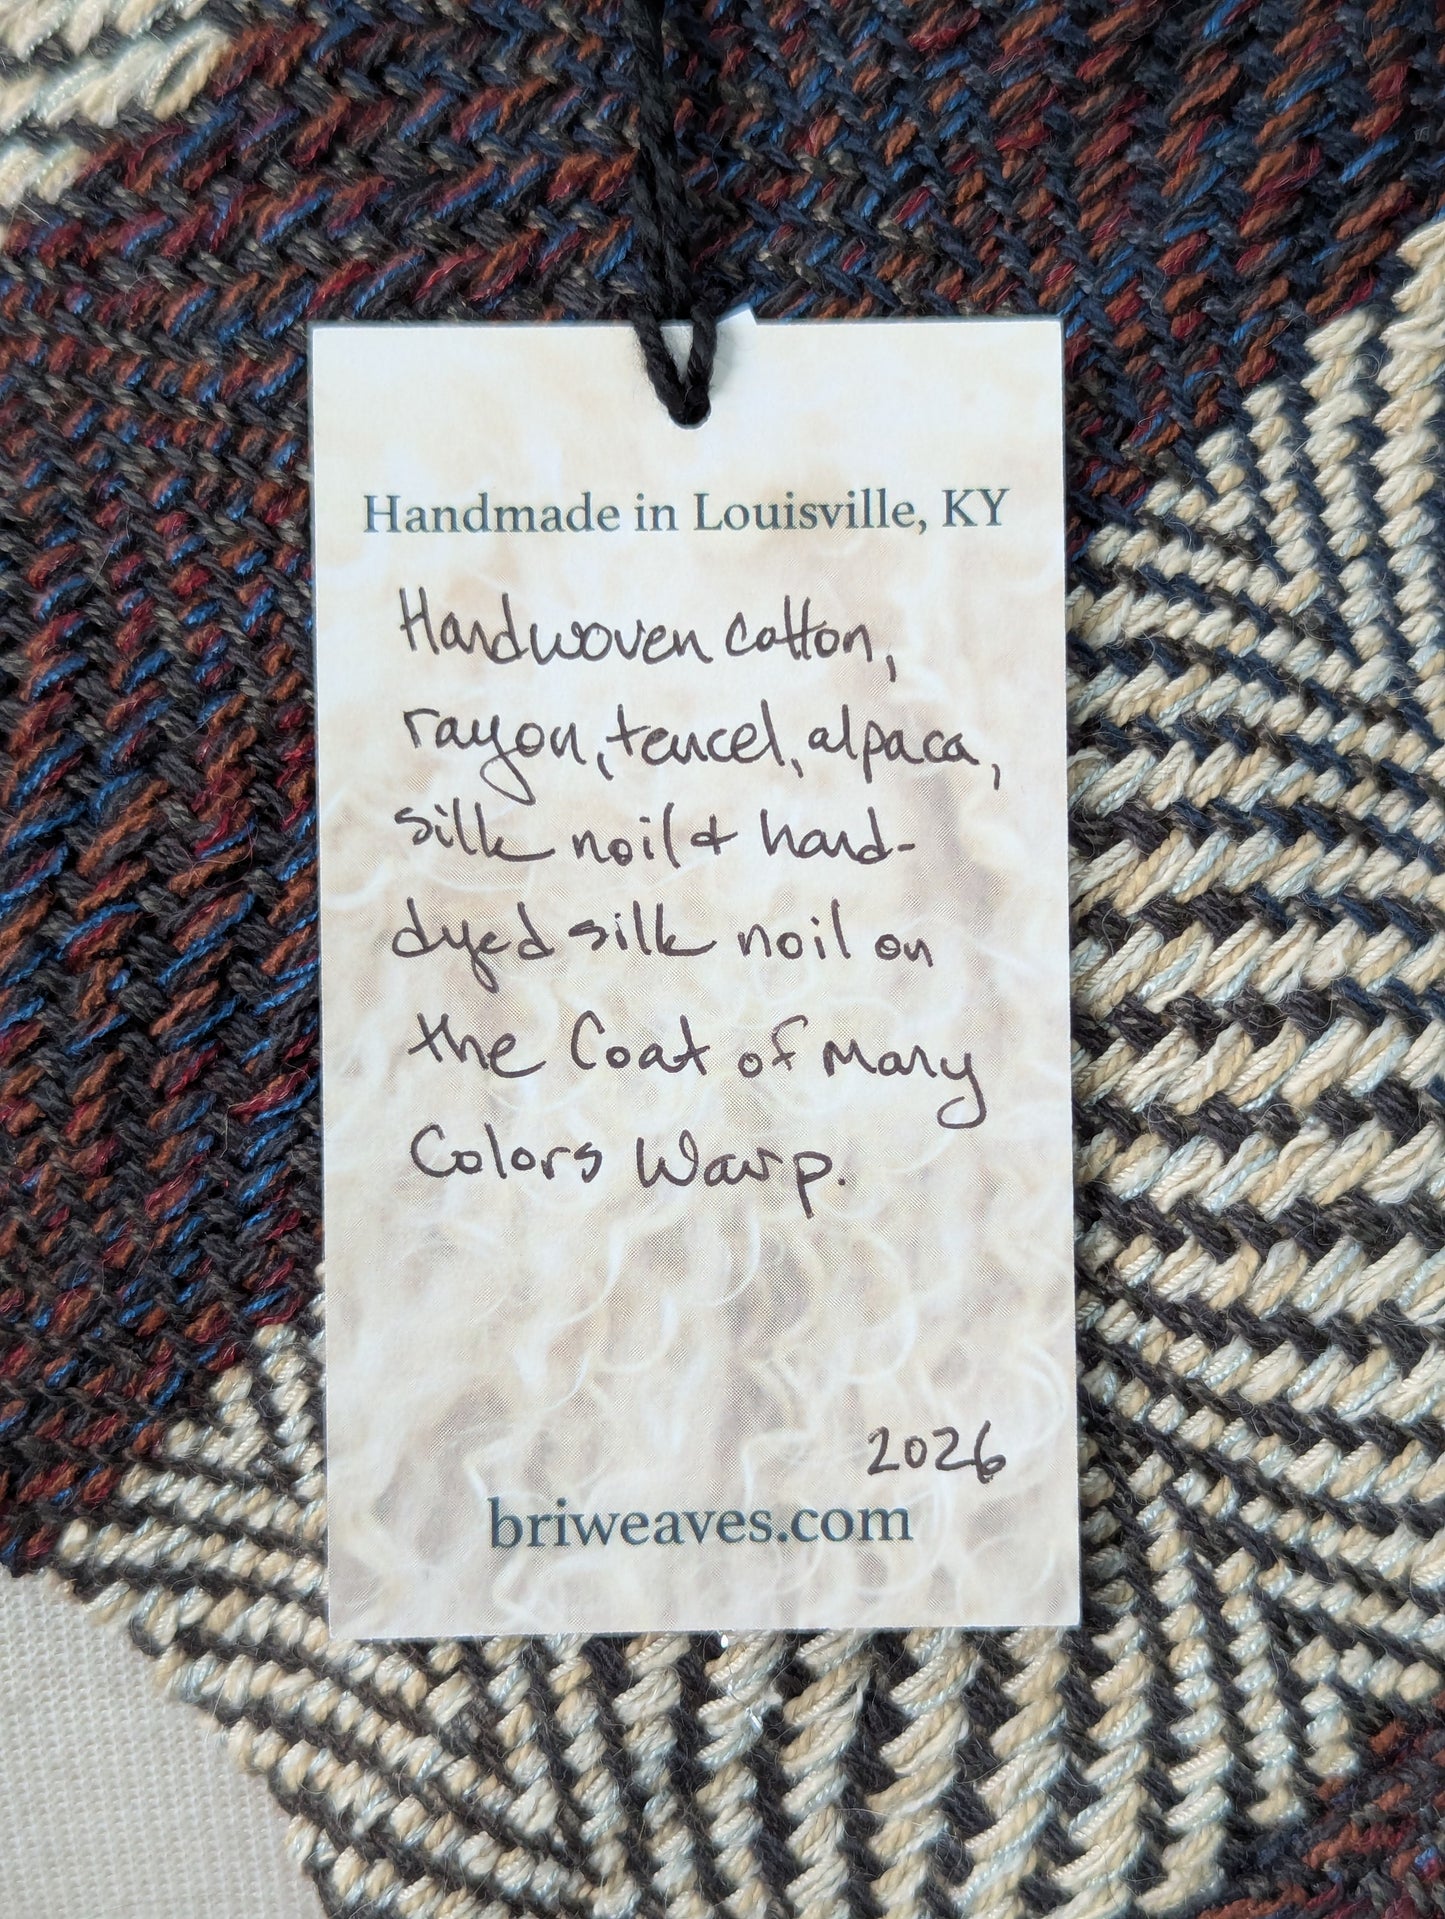 Handmade in Louisville, KY
Handwoven cotton,
rayon, tencel, alpaca,
silk noil & hand-
dyed silk noil on
the Coat of Many
Colors Warp.
2026
briweaves.com